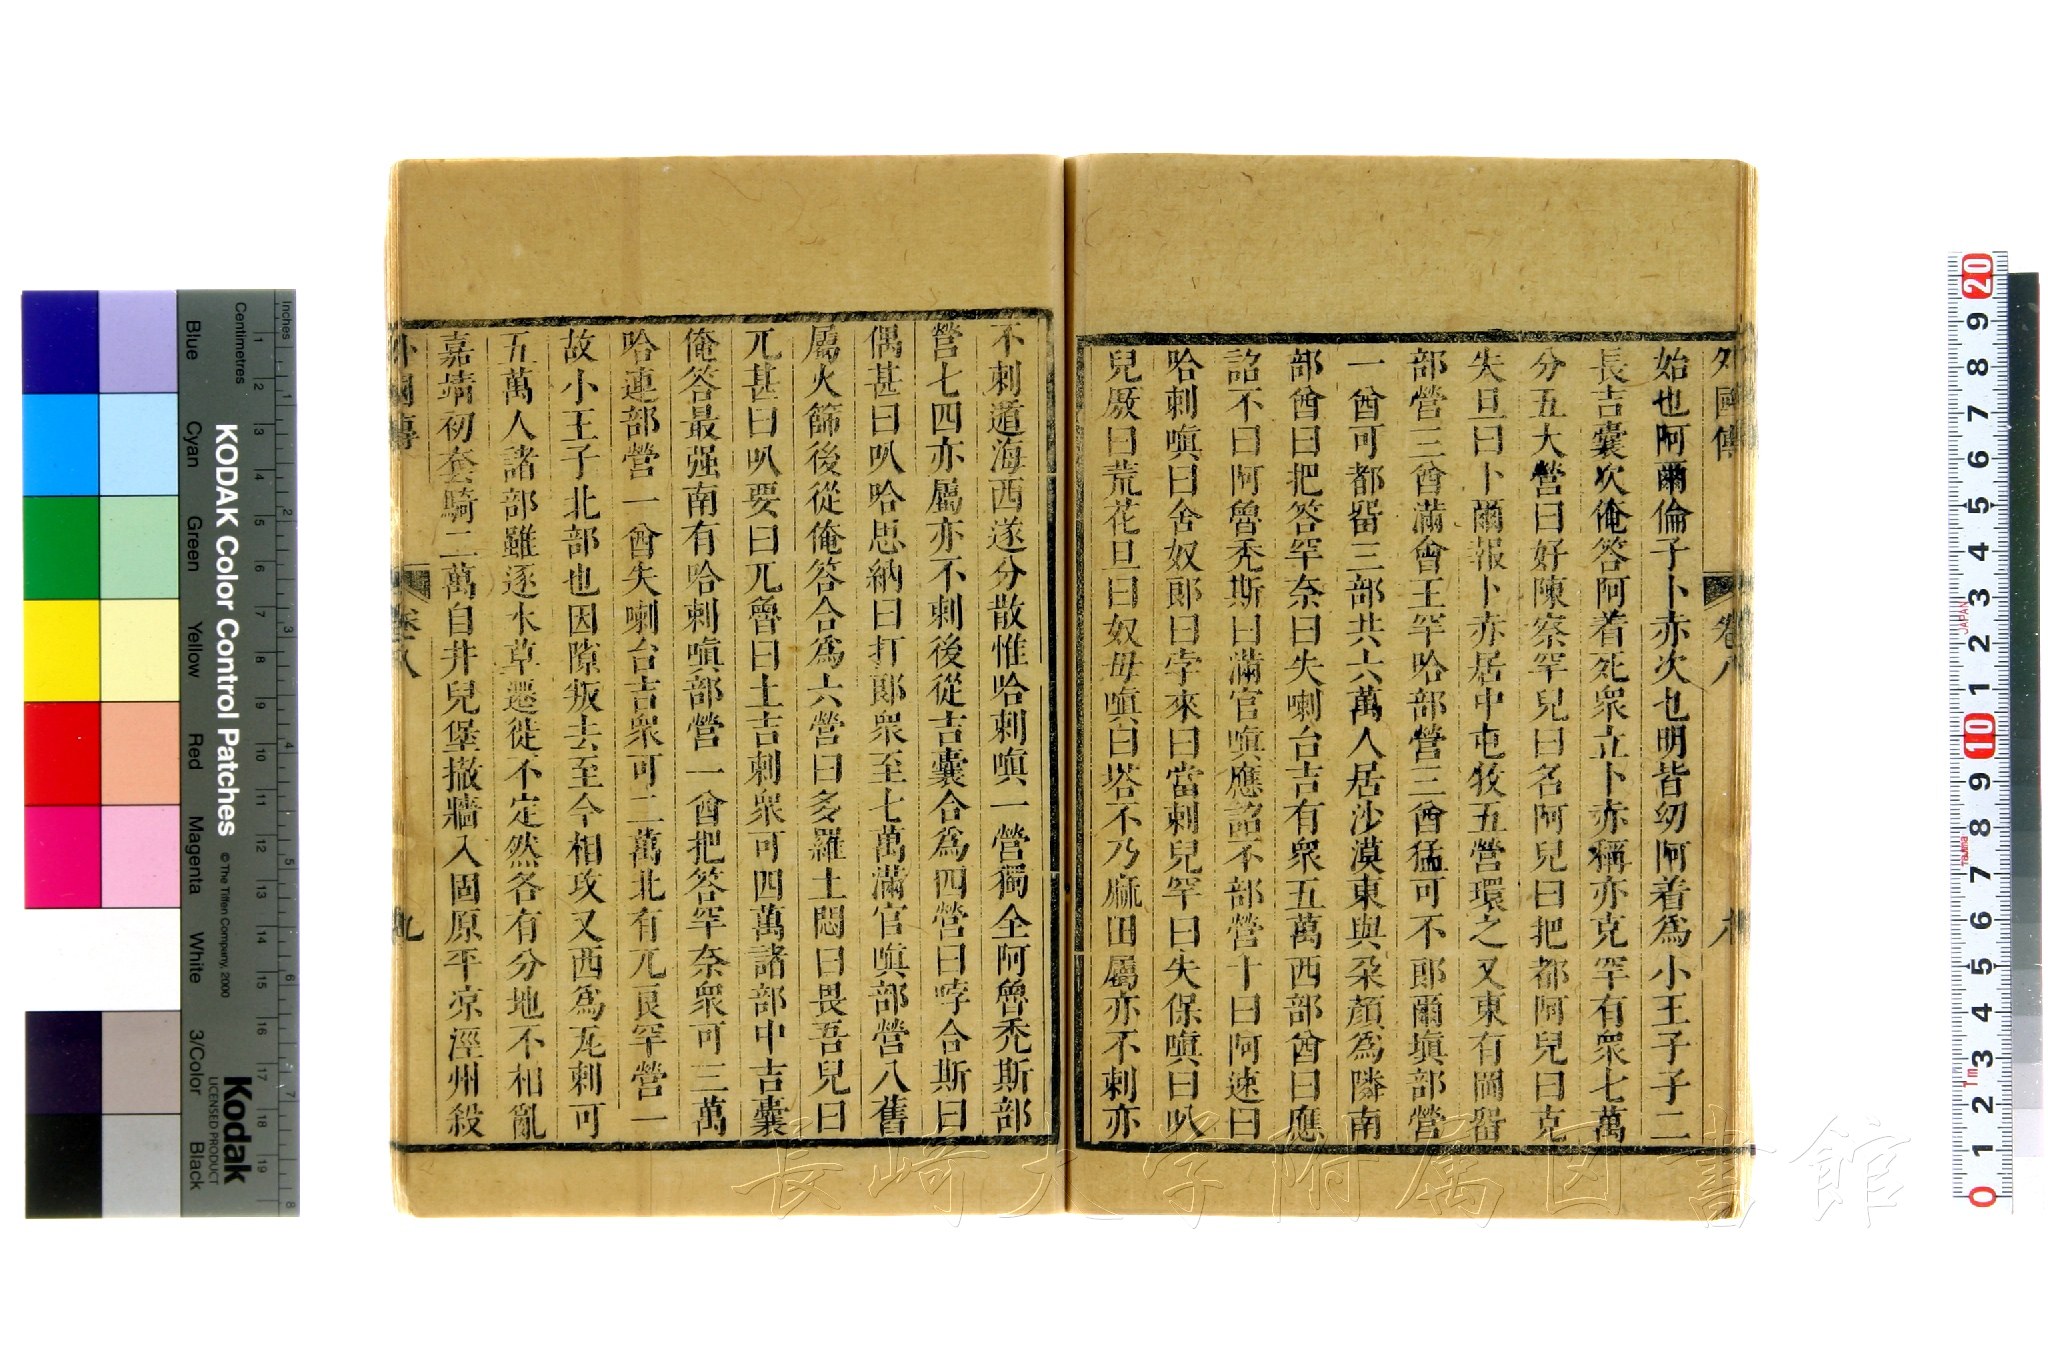 外國傳 卷八 八
始也阿爾倫子卜赤次也明皆幼阿着爲小王子子二
長吉囊次俺答阿着死衆立卜赤稱亦克罕有衆七萬
分五大營曰好陳察罕兒曰名阿兒曰把都阿兒曰克
失旦曰卜爾報卜赤居中屯牧五營環之又東有罔畱
部營三酋滿會王罕哈部營三酋猛可不郎爾塡部營
一酋可都畱三部共六萬人居沙漠東與朶顏爲隣南
部酋曰把答罕奈曰失喇台吉有衆五萬西部酋曰應
詔不曰阿魯禿斯曰滿官嗔應詔不部營十曰阿速曰
哈刺嗔曰舍奴郞曰孛來曰當刺兒罕曰失保嗔曰叭
兒厫曰荒花旦曰奴毋嗔曰塔不乃麻田屬亦不刺亦
不刺遁海西遂分散惟哈刺嗔一營獨全阿魯禿斯部
營七四亦屬亦不刺後從吉囊合爲四營曰哱合斯曰
偶甚曰叭哈思納曰打郞衆至七萬滿官嗔部營八舊
屬火篩後從俺答合爲六營曰多羅土悶曰畏吾兒曰
兀甚曰叭要曰兀魯曰土吉刺衆可四萬諸部中吉囊
俺答最强南有哈刺嗔部營一酋把答罕奈衆可三萬
哈連部營一酋失喇台吉衆可二萬北有兀良罕營一
故小王子北部也因隙叛去至今相攻又西爲瓦刺可
五萬人諸部雖逐水草遷徙不定然各有分地不相亂
嘉靖初套騎二萬自井兒堡撤牆入固原平凉涇州殺
外國傳 卷八 九
KODAK Color Control Patches
© The Tiffen Company, 2000
Kodak
LICENSED PRODUCT
Inches
Centimetres
Blue Cyan Green Yellow Red Magenta White 3/Color Black
1 2 3 4 5 6 7 8
1 2 3 4 5 6 7 8 9 10 11 12 13 14 15 16 17 18 19
0 1 2 3 4 5 6 7 8 9 10 1 2 3 4 5 6 7 8 9 20
JAPAN
長崎大学附属図書館